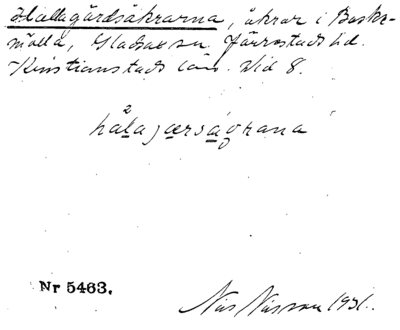 Hallagårdsåkrarna, åkrar i Baske-
mölla, Gladsax sn. Järrestads hd.
Kristianstads län. Vid 8.
hálagærságrana
Nr 5463.
Nils Nilsson 1931.